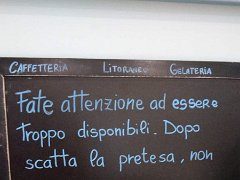 Caffetteria Litorale Gelateria
Fate attenzione ad essere
troppo disponibili. Dopo
scatta la pretesa, non